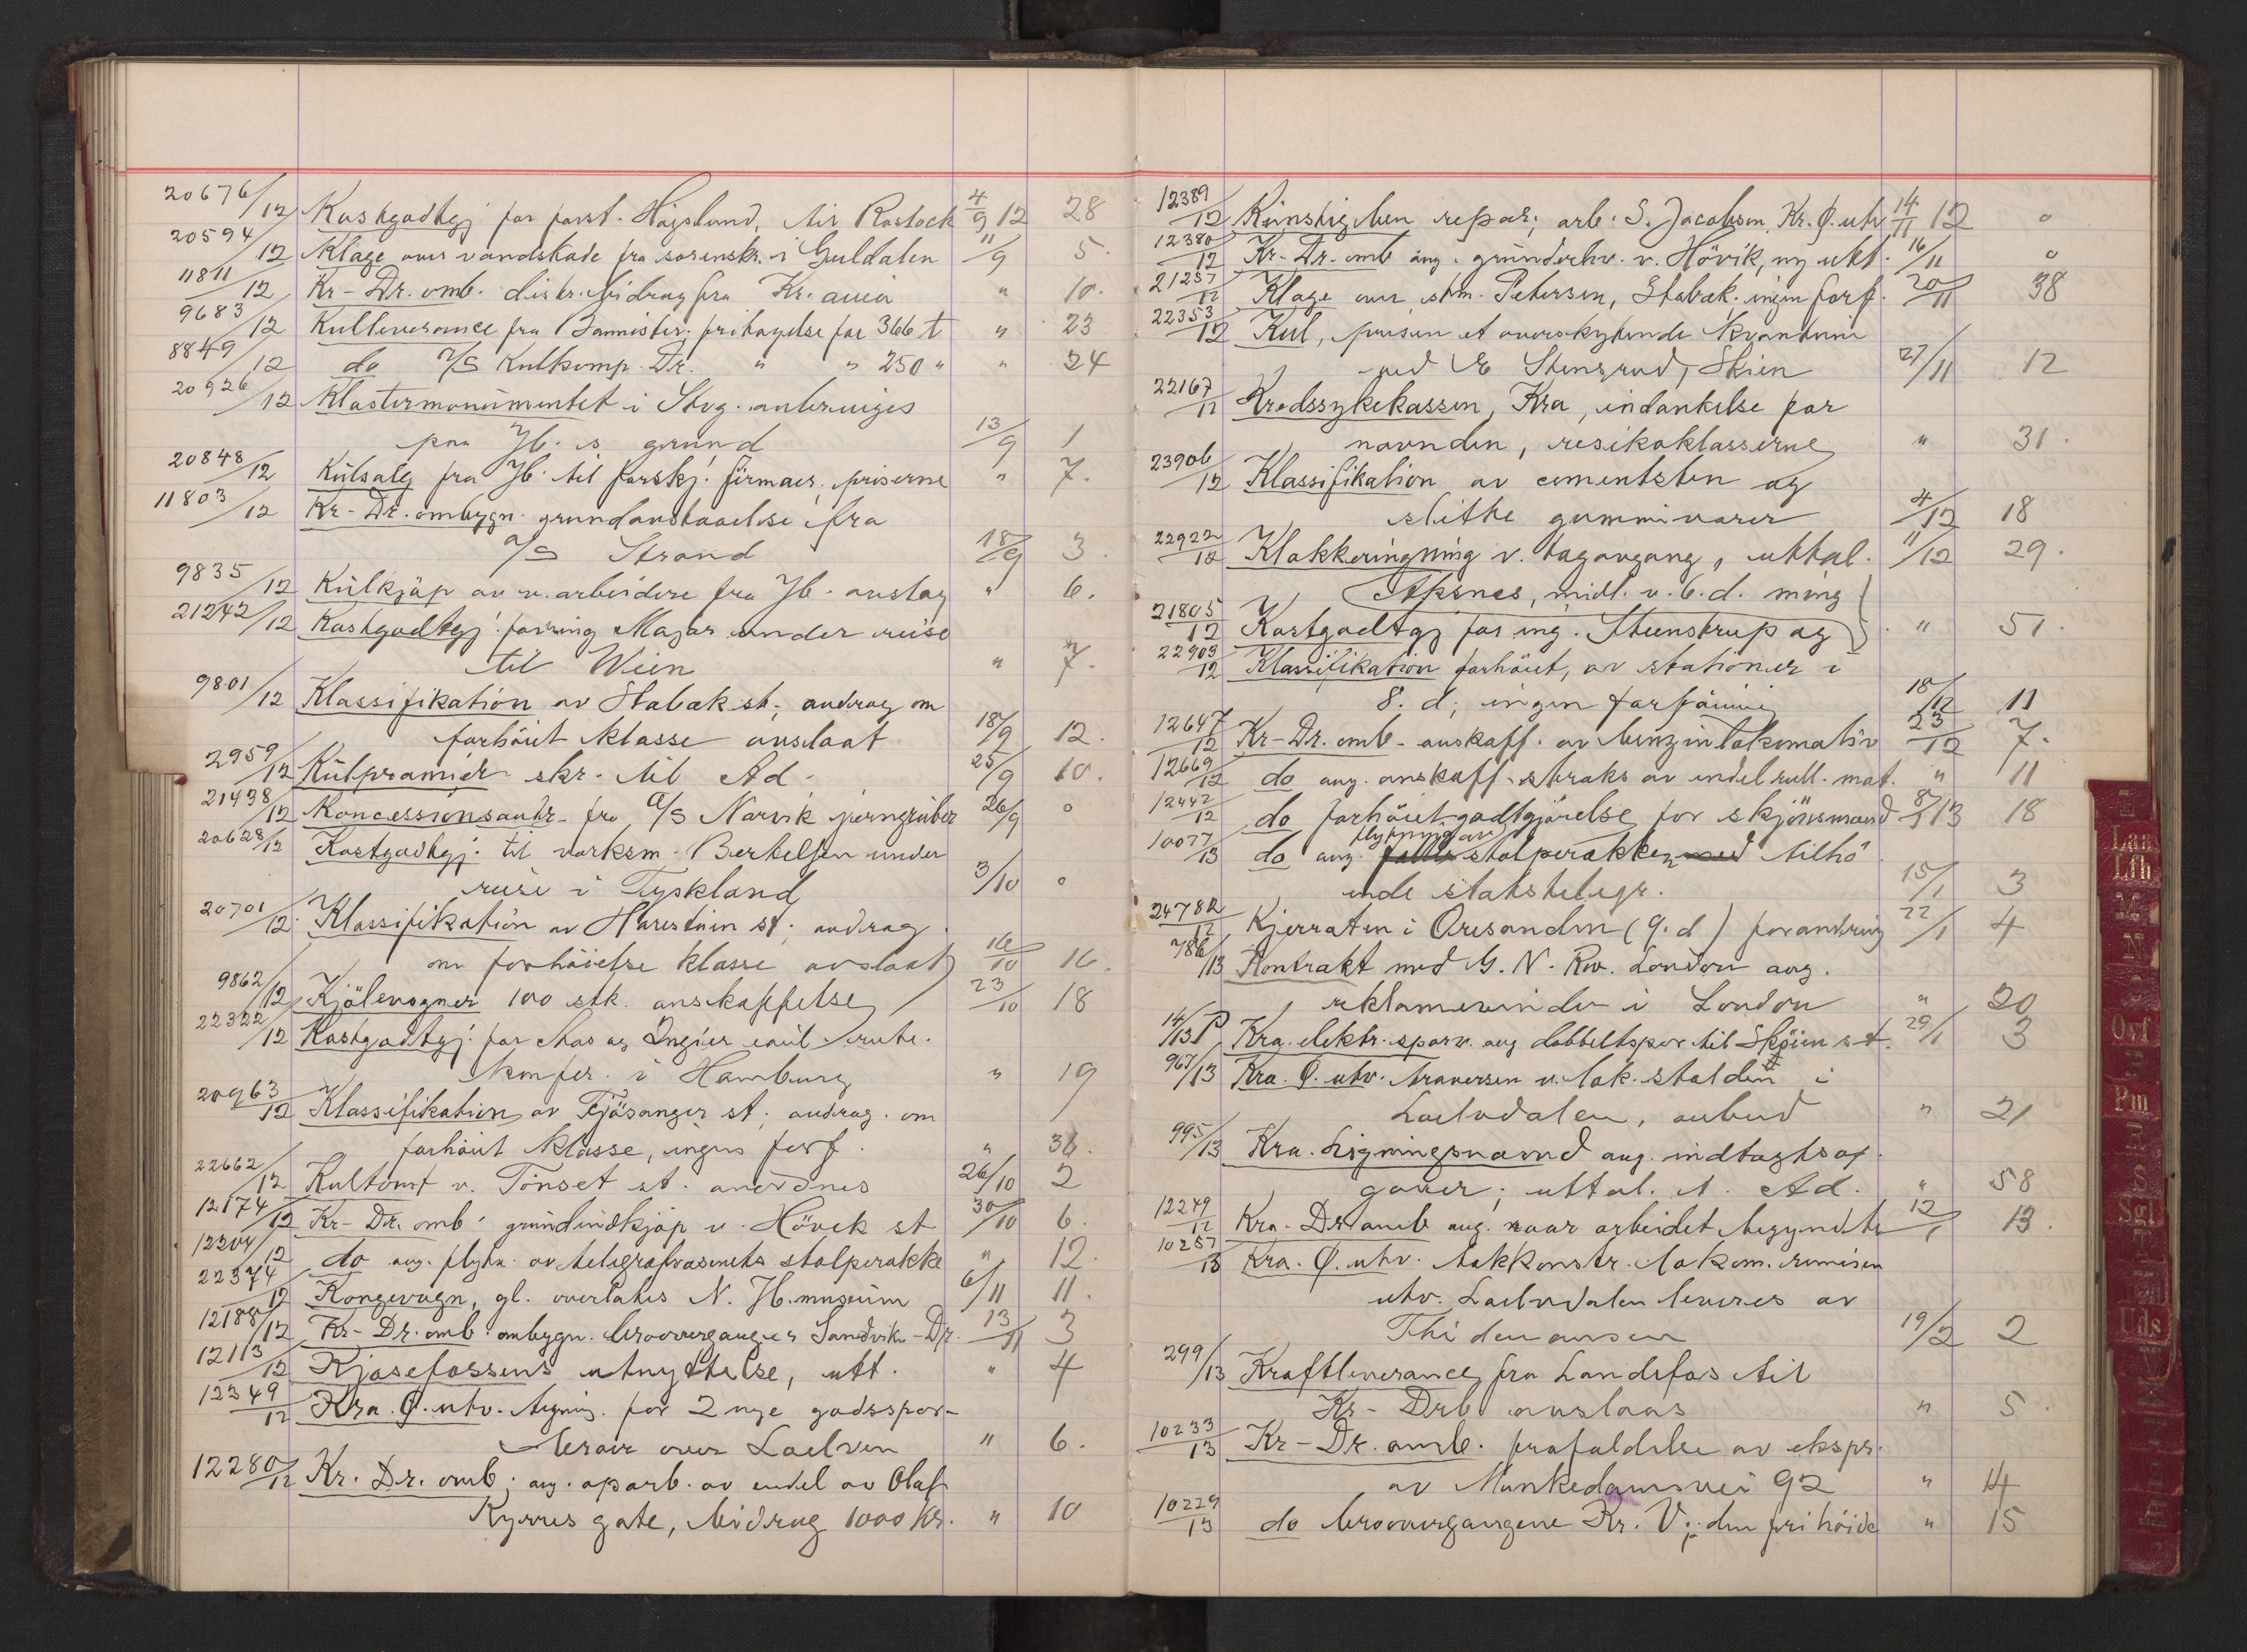 20676/12 Kostgodtgj for forst. Högslund, til Rostock 4/9 12 28
20594/12 Klage over vandskade fra sorenskr. i Guldalen 11/9 5.
11811/12 Kr-Dr. omb. distr. bidrag fra Kr. " 10.
9683/12 Kulleverance fra Bannister, fritagelse for 366 t " 23
8849/12 do A/S Kulkomp. Dr. " " 250 " " 24
20926/12 Klostermonumentet i Stvg. anbringes
paa Jb.s grund 13/9 1
20848/12 Kulsalg fra Jb. til forskj. firmaer, priserne " 7.
11803/12 Kr-Dr. ombygn. grundavstaaelse fra
A/S Strand 18/9 3.
9835/12 Kulkjöp av n. arbeidere fra Jb. avslag " 6.
21242/12 Kostgodtgj. for ing Major under reise
til Wien " 7.
9801/12 Klassifikation av Stabak st., andrag om
forhöiet klasse avslaat 18/9 12.
2959/12 Kulpramier skr. til Ad. 25/9 10.
21498/12 Koncessionsandr. fra A/S Narvik jerngruber 26/9 0
20628/12 Kostgodtgj. til verksm. Berkelsen under
reise i Tyskland 3/10 0
20701/12 Klassifikation av Harestuin st; andrag
om forhöielse klasse avslaat 16/10 16.
9862/12 Kjölevogner 100 stk. anskaffelse 23/10 18
22322/12 Kostgodtgj. for Aas og Ingier rute.
konfer. i Hamburg " 19
20963/12 Klassifikation av Fjösanger st; andrag. om
forhöiet klasse, ingen forf. " 36.
22662/12 Kultomt v. Tönset st. anordnes 26/10 2
12174/12 Kr-Dr. omb. grundindkjöp v. Hövik st 30/10 6.
12204/12 do ang. flytn. av telegrafvæsenets stolperække " 12.
22374/12 Kongevogn, gl. overlates N. Jb. museum 6/11 11.
12188/12 Kr-Dr. omb. ombygn. broovergange Sandvika-Dr. 13/11 3
12113/12 Kjosefossens utnyttelse, utt. " 4
12349/12 Kra. Ö. utv. tegning. for 2 nye godsspor-
broer over Loelven " 6.
12280/12 Kr. Dr. omb; ang. oparb. av endel av Olaf
Kyrres gate, bidrag 1000 Kr. " 10
12389/12 Kunstig ben repar; arb. S. Jacobsen, Kr. Ö. utv 14/11 12 0
12380/12 Kr-Dr. omb ang. grunderhv. v. Hövik, ny utst. 16/11 0
21257/12 Klage over stm. Petersen, Stabak. ingen forf. 20/11 38
22353/12 Kul, prisen et overskytende kvantum
ved E Stensrud, Skien 27/11 12
22167/12 Kredssykekassen, Kra, indankelse for
nævnden, resikoklasserne " 31.
23906/12 Klassifikation av cementsten og
slitte gummivarer 4/12 18
22922/12 Klokkeringning v. togavgang, uttal. 11/12 29.
Apsnes, midl. v. 6. d. ming
21805/12 Kostgodtgj for ing. Steenstrup og " 51.
22909/12 Klassifikation forhöiet, av stationer i
8. d; ingen forföining 18/12 11
12647/12 Kr-Dr. omb. anskaff. av benzinlokomotiv 23/12 7.
12669/12 do ang. anskaff. straks av endel rull. mat. " 11
12442/12 do forhöiet godtgjörelse for skjönsmænd 8/1 13 18
10077/13 do ang. flytning av stolperækken tilhö
ende statstelegr. 15/1 3
24782/12 Kjerraten i Öresanden (9. d) forandring 22/1 4
786/13 Kontrakt med G. N. Rw. London ang.
reklamevindu i London " 20
14/13 P Kra. elektr. sporv. ang dobbeltspor til Sköien st. 29/1 3
967/13 Kra. Ö. utv. traversen v. lok. stalden i
Loelvdalen, anbud " 21
995/13 Kra. Ligningsnævnd ang. indtægtsop-
gaver; uttal. t. Ad. " 58
12249/12 Kra-Dr omb ang. naar arbeidet begyndte 12/1 13.
10257/13 Kra. Ö. utv. takkonstr. lokom. remisen
utv. Loelvdalen leveres av
Thidemansen 19/2 2
299/13 Kraftleverance fra Landsfos til
Kr-Drb avslaas " 5.
10233/13 Kr-Dr. omb. frafaldelse av ekspr.
av Munkedamsvei 92 " 14
10229/13 do broovergangene Kr. V; den fri höide " 15
Län
Lfh
M
N
O
Ovf
Pm
R
S
Sgl
Uds